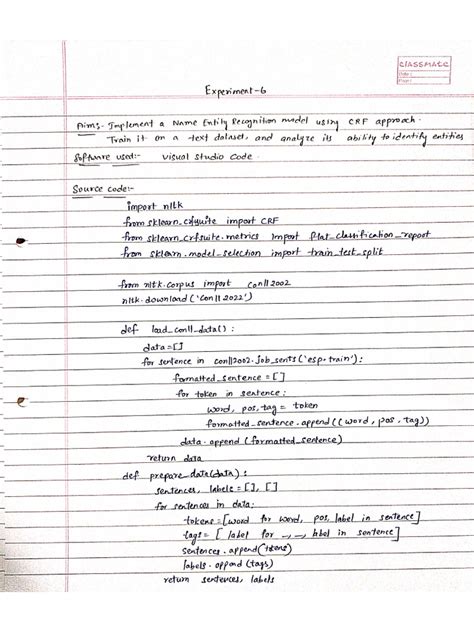 CLASSMATE
Date :
Page :
Experiment-6
Aim:- Implement a Name Entity Recognition model using CRF approach.
Train it on a text dataset, and analyze its ability to identify entities
Software used:- Visual Studio Code.
Source code:-
import nltk
from sklearn_crfsuite import CRF
from sklearn_crfsuite.metrics import flat_classification_report
from sklearn.model_selection import train_test_split
from nltk.corpus import conll2002
nltk.download('conll2022')
def load_conll_data():
data=[]
for sentence in conll2002.iob_sents('esp.train'):
formatted_sentence = []
for token in sentence:
word, pos, tag = token
formatted_sentence.append((word, pos, tag))
data.append(formatted_sentence)
return data
def prepare_data(data):
sentences, labels = [], []
for sentences in data:
tokens = [word for word, pos, label in sentence]
tags = [label for _, _, label in sentence]
sentences.append(tokens)
labels.append(tags)
return sentences, labels